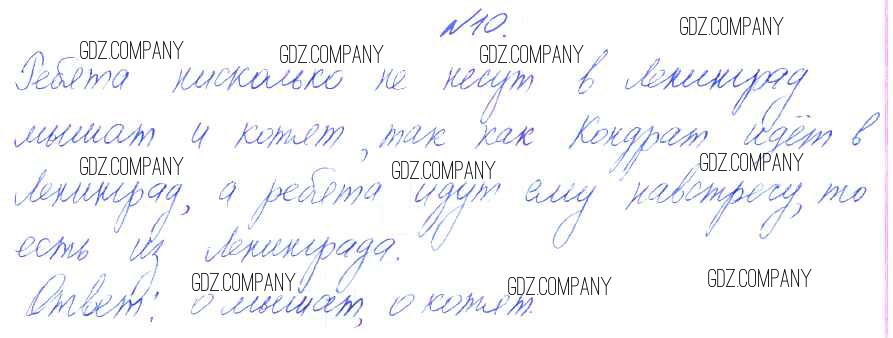 №10.
GDZ.COMPANY GDZ.COMPANY GDZ.COMPANY GDZ.COMPANY
Ребята нисколько не несут в Ленинград
мышат и котят, так как Кондрат идёт в
GDZ.COMPANY GDZ.COMPANY GDZ.COMPANY
Ленинград, а ребята идут ему навстречу, то
есть из Ленинграда.
GDZ.COMPANY GDZ.COMPANY GDZ.COMPANY
Ответ: 0 мышат, 0 котят.